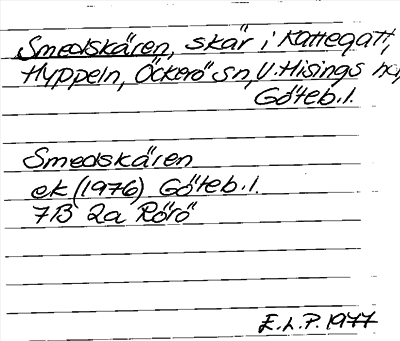 Smedskären, skär i Kattegatt,
Hyppeln, Öckerö sn, V. Hisings hd,
Göteb. l.
Smedskären
ek (1976) Göteb. l.
7B 2a Rörö
E.L.P. 1977